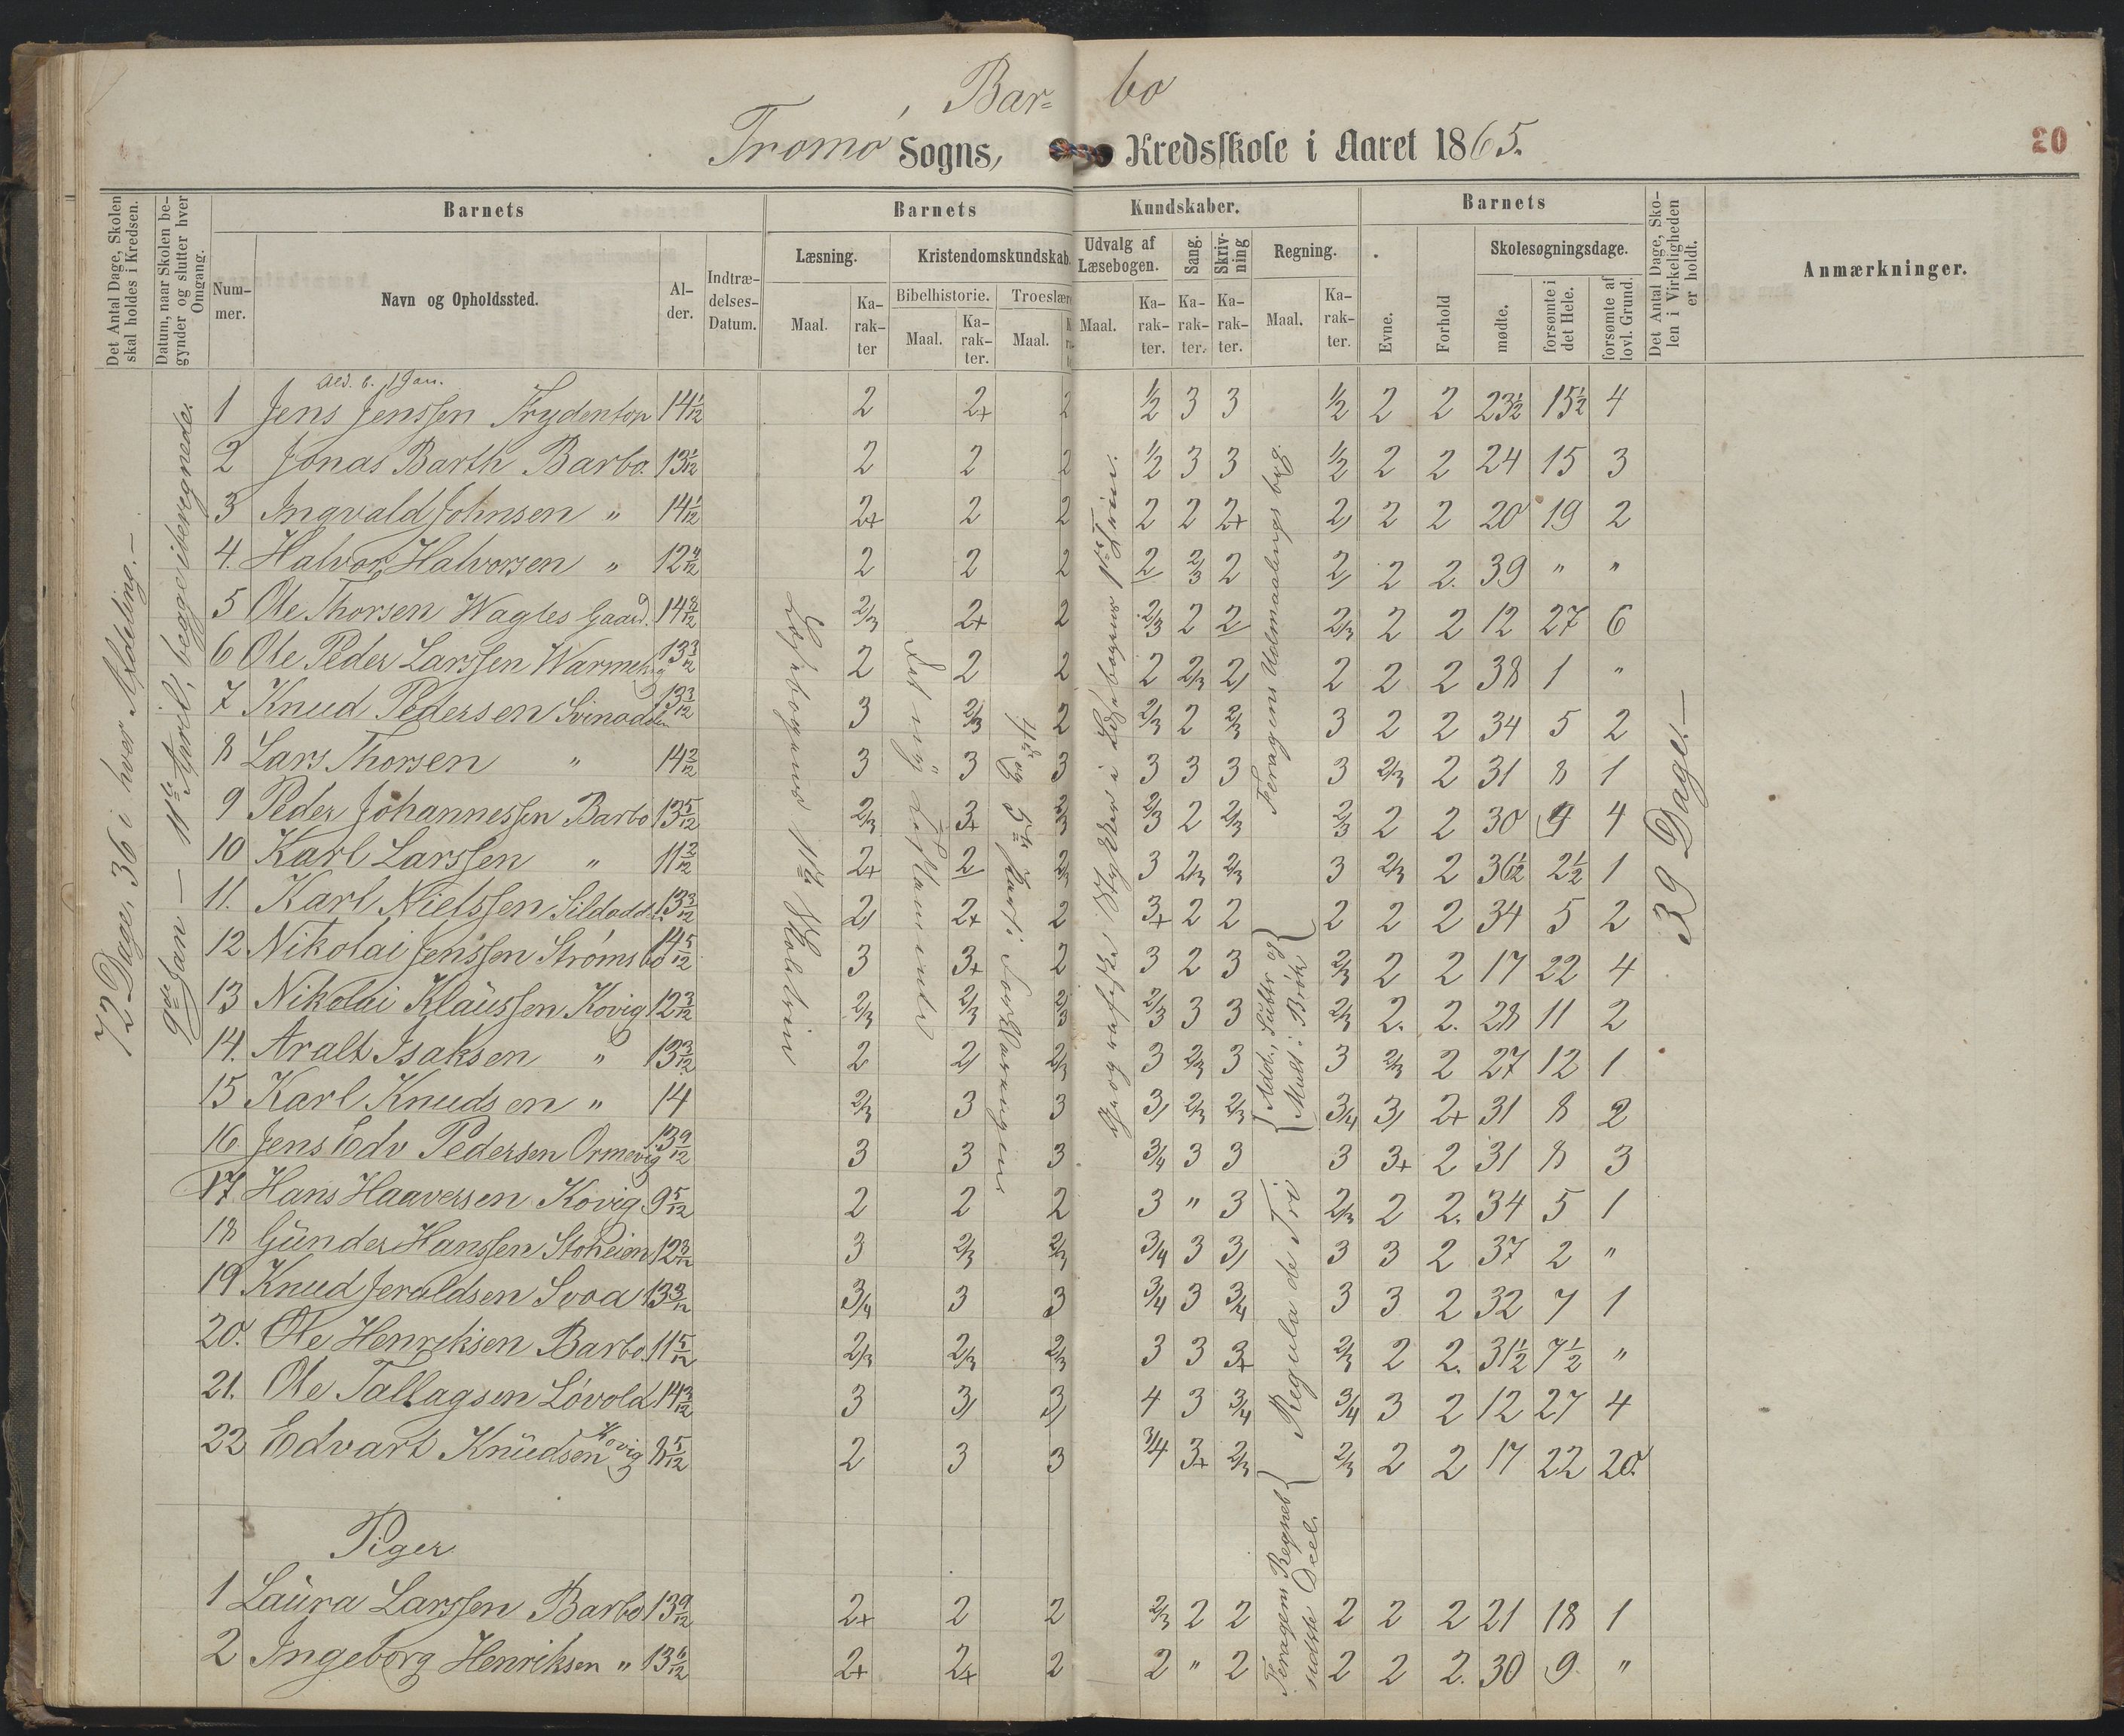 Bar= bo
Tromø Sogns, Kredsskole i Aaret 1865.
20
Det Antal Dage, Skolen skal holdes i Kredsen.
Datum, naar Skolen begynder og slutter hver Omgang.
Barnets
Barnets Kundskaber.
Barnets
Det Antal Dage, Skolen i Virkeligheden er holdt.
Anmærkninger.
Nummer.
Navn og Opholdssted.
Alder.
Indtrædelses-Datum.
Læsning.
Kristendomskundskab.
Udvalg af Læsebogen.
Sang.
Skrivning
Regning.
Evne.
Forhold
Skolesøgningsdage.
Maal.
Karakter
Bibelhistorie.
Troeslære
Maal.
Karakter.
Maal.
Maal.
Karakter.
Karakter.
Karakter.
Maal.
Karakter.
mødte.
forsømte i det Hele.
forsømte af lovl. Grund.
72 Dage, 36 i hver Afdeling.—
9de Jan — 11te April, begge iberegnede.
39 Dage.—
Ald. b. 1 Jan.
1 Jens Jenssen Frydentop 14 1/12 2 2+ 2 1/2 3 3 1/2 2 2 23 1/2 15 1/2 4
2 Jonas Barth Barbo. 13 1/12 2 2 2 1/2 3 3 1/2 2 2 24 15 3
3 Ingvald Johnsen " 14 1/12 2+ 2 2 2 2 2+ 2/ 2 2 20 19 2
4. Halvor Halvorsen " 12 4/12 2 2 2 2 2/3 2 2/ 2 2. 39 " "
5 Ole Thorsen Wagtes Gaard. 14 8/12 2/3 2+ 2 2/3 2 2 2/3 2 2 12 27 6
6 Ole Peder Larssen 13 3/12 2 2 2 2 2/3 2/ 2 2 2 38 1 "
7 Knud Pedersen Svinodden 13 3/12 3 2/3 2 2/3 2 2/3 3 2 2 34 5 2
8 Lars Thorsen " 14 2/12 3 3 3 3 3 3 3 2/3 2 31 8 1
9 Peder Johannessen Barbo 13 5/12 2/3 3+ 2/3 2/3 2 2/3 2/3 2 2 30 9 4
10 Karl Larssen " 11 2/12 2+ 2 2/3 3 2/3 2/3 3 2/3 2 36 1/2 2 1/2 1
11. Karl Nielssen Sildodd. 13 3/12 2/ 2+ 2 3+ 2 2 2 2 2 34 5 2
12 Nikolai Jenssen Strømsbo 14 5/12 3 3+ 2 3 2 3 2/3 2 2 17 22 4
13 Nikolai Klaussen Kovig 12 3/12 2/3 2/3 2/3 2/3 3 3 2/3 2. 2. 28 11 2
14. Aralt Isaksen " 13 3/12 2 2/ 2/3 3 2/3 3 3 2/3 2 27 12 1
15 Karl Knudsen " 14 2/3 3 3 3/ 2/3 2/3 3/4 3/ 2+ 31 8 2
16. Jens Edv Pedersen Ormevig 13 9/12 3 3 3 3/4 3 3 3 3+ 2 31 8 3
17 Hans Haaversen Kovig 9 5/12 2 2 2 3 " 3 2/3 2 2. 34 5 1
18 Gunder Hanssen Stoheien 12 3/12 3 2/3 2/3 3/4 3 3/ 3 3 2 37 2 "
19 Knud Jeroldsen Svoa 13 3/12 3/4 3 3 3/4 3 3/4 3 3 2 32 7 1
20. Ole Henriksen Barbo. 11 5/12 2/3 2/3 2/3 3 3 3+ 2/3 2 2. 31 1/2 7 1/2 "
21. Ole Tallagsen Løvold 14 3/12 3 3/ 3/ 4 3 3/4 3/4 3 2 12 27 4
22 Edvart Knudsen Kovig 8 5/12 2 3 3 3/4 3+ 2/3 2/3 2 2 17 22 20.
Piger
1 Laura Larssen Barbo 13 9/12 2+ 2 2 2/3 2 2 2 2 2 21 18 1
2 Ingeborg Henriksen " 13 6/12 2+ 2+ 2 2 " 2 2 2 2. 30 9 "
Læsebogens 1ste Skoletrin
4de og 5te Part i Forklaringen
Stykker i Læsebogens 1ste Trin.
Feragens Udmaalings beg.
Add., Subtr og Mult i Brøk
Regula de Tri
Feragens Regneb sidste Deel.